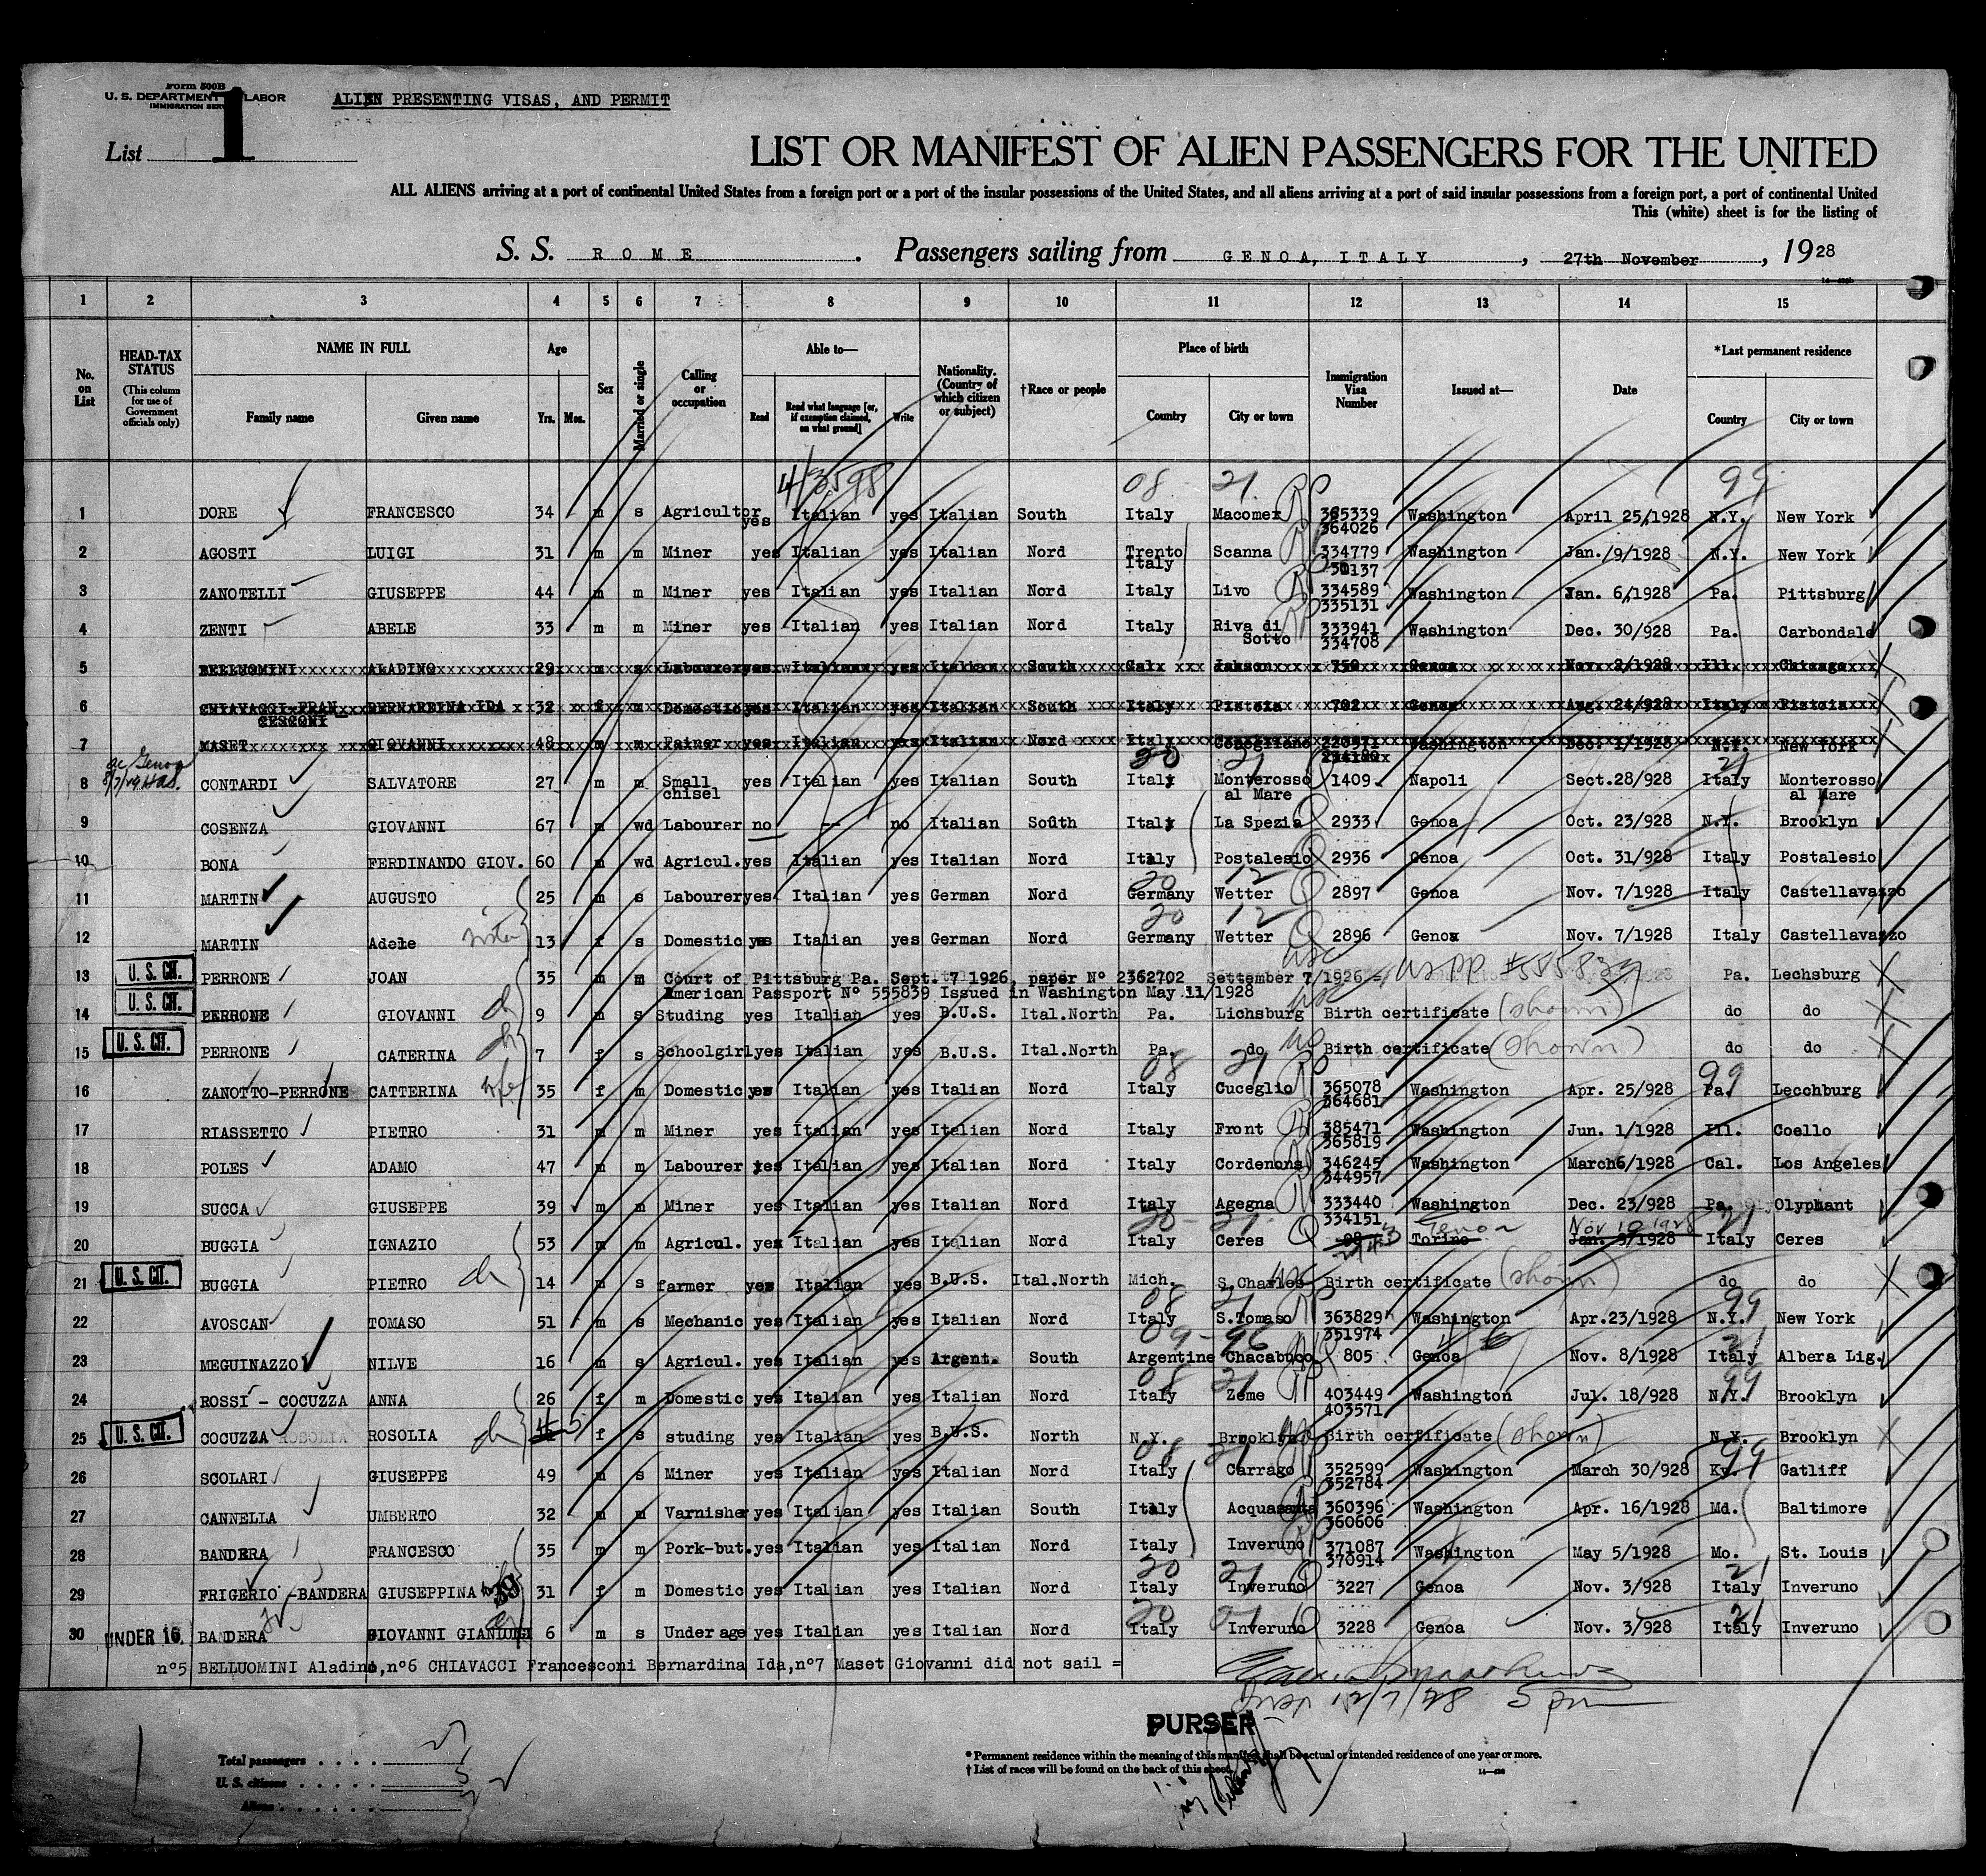 Form 500B
U. S. DEPARTMENT LABOR
IMMIGRATION SERV
1
ALIEN PRESENTING VISAS, AND PERMIT
List
LIST OR MANIFEST OF ALIEN PASSENGERS FOR THE UNITED
ALL ALIENS arriving at a port of continental United States from a foreign port or a port of the insular possessions of the United States, and all aliens arriving at a port of said insular possessions from a foreign port, a port of continental United
This (white) sheet is for the listing of
S. S. ROME . Passengers sailing from GENOA, ITALY , 27th November , 1928
1 2 3 4 5 6 7 8 9 10 11 12 13 14 15
No. on List
HEAD-TAX STATUS (This column for use of Government officials only)
NAME IN FULL Family name Given name
Age Yrs. Mos.
Sex
Married or single
Calling or occupation
Able to— Read Read what language [or, if exemption claimed, on what ground] Write
Nationality. (Country of which citizen or subject)
†Race or people
Place of birth Country City or town
Immigration Visa Number
Issued at—
Date
*Last permanent residence Country City or town
08 21 99
1 DORE FRANCESCO 34 m s Agricultor yes Italian yes Italian South Italy Macomer 365339 Washington April 25,1928 N.Y. New York
364026
2 AGOSTI LUIGI 31 m m Miner yes Italian yes Italian Nord Trento Italy Scanna 334779 Washington Jan. /9/1928 N.Y. New York
3 ZANOTELLI GIUSEPPE 44 m m Miner yes Italian yes Italian Nord Italy Livo 334589 Washington Jan. 6,1928 Pa. Pittsburg
335131
4 ZENTI ABELE 33 m m Miner yes Italian yes Italian Nord Italy Riva di Sotto 333941 Washington Dec. 30/928 Pa. Carbondale
334708
5 BELLUOMINI ALADINO 29 m s Labourer yes Italian yes Italian South Cal. Jakson 750 Genoa Nov. 2/1928 Ill. Chicago
6 CHIAVACCI FRAN CESCONI BERNARDINA IDA 32 f m Domestic yes Italian yes Italian South Italy Pistoia 702 Genoa Aug. 24/928 Italy Pistoia
7 MASET GIOVANNI 48 m m yes Italian yes Italian Nord Italy Conegliano Washington Dec. 1/1928 N.Y. New York
20 21 21
8 CONTARDI SALVATORE 27 m m Small chisel yes Italian yes Italian South Italy Monterosso al Mare 1409 Napoli Sect.28/928 Italy Monterosso al Mare
9 COSENZA GIOVANNI 67 m wd Labourer no -- no Italian South Italy La Spezia 2933 Genoa Oct. 23/928 N.Y. Brooklyn
10 BONA FERDINANDO GIOV. 60 m wd Agricul. yes Italian yes Italian Nord Italy Postalesio 2936 Genoa Oct. 31/928 Italy Postalesio
20 12
11 MARTIN AUGUSTO 25 m s Labourer yes Italian yes German Nord Germany Wetter 2897 Genoa Nov. 7/1928 Italy Castellavazzo
20 12
12 MARTIN Adele sister 13 f s Domestic yes Italian yes German Nord Germany Wetter 2896 Genoa Nov. 7/1928 Italy Castellavazzo
13 U. S. CIT. PERRONE JOAN 35 m m Court of Pittsburg Pa. Sept. 7 1926, paper Nº 2362702 Settember 7/1926 = US PP #555839 Pa. Lechsburg
American Passport Nº 555839 Issued in Washington May 11/1928
14 U. S. CIT. PERRONE GIOVANNI ch 9 m s Studing yes Italian yes B.U.S. Ital.North Pa. Lichsburg Birth certificate (shown) do do
15 U. S. CIT. PERRONE CATERINA ch 7 f s Schoolgirl yes Italian yes B.U.S. Ital.North Pa. do Birth certificate (shown) do do
08 21 99
16 ZANOTTO-PERRONE CATTERINA wife 35 f m Domestic yes Italian yes Italian Nord Italy Cuceglio 365078 Washington Apr. 25/928 Pa. Lecchburg
364681
17 RIASSETTO PIETRO 31 m m Miner yes Italian yes Italian Nord Italy Front 385471 Washington Jun. 1/1928 Ill. Coello
365819
18 POLES ADAMO 47 m m Labourer yes Italian yes Italian Nord Italy Cordenons 346245 Washington March6/1928 Cal. Los Angeles
344957
19 SUCCA GIUSEPPE 39 m m Miner yes Italian yes Italian Nord Italy Agegna 333440 Washington Dec. 23/928 Pa. Olyphant
334151
20 21 Genoa Nov 10 1928 21
20 BUGGIA IGNAZIO 53 m m Agricul. yes Italian yes Italian Nord Italy Ceres Torino Jan. 9/1928 Italy Ceres
21 U. S. CIT. BUGGIA PIETRO ch 14 m s farmer yes Italian yes B.U.S. Ital.North Mich. S.Charles Birth certificate (shown) do do
08 21 99
22 AVOSCAN TOMASO 51 m s Mechanic yes Italian yes Italian Nord Italy S.Tomaso 363829 Washington Apr.23/1928 N.Y. New York
351974
09-96 21
23 MEGUINAZZO NILVE 16 m s Agricul. yes Italian yes Argent. South Argentine Chacabuco 805 Genoa Nov. 8/1928 Italy Albera Lig.
08 21 99
24 ROSSI - COCUZZA ANNA 26 f m Domestic yes Italian yes Italian Nord Italy Zeme 403449 Washington Jul. 18/928 N.Y. Brooklyn
403571
25 U. S. CIT. COCUZZA ROSOLIA ch 5 f s studing yes Italian yes B.U.S. North N.Y. Brooklyn Birth certificate (shown) N.Y. Brooklyn
08 21 99
26 SCOLARI GIUSEPPE 49 m s Miner yes Italian yes Italian Nord Italy Carrago 352599 Washington March 30/928 Ky. Gatliff
352784
27 CANNELLA UMBERTO 32 m m Varnisher yes Italian yes Italian South Italy Acquasanta 360396 Washington Apr. 16/1928 Md. Baltimore
360606
28 BANDERA FRANCESCO 35 m m Pork-but. yes Italian yes Italian Nord Italy Inveruno 371087 Washington May 5/1928 Mo. St. Louis
370914
20 21 21
29 FRIGERIO -BANDERA GIUSEPPINA 31 f m Domestic yes Italian yes Italian Nord Italy Inveruno 3227 Genoa Nov. 3/928 Italy Inveruno
20 21 21
30 UNDER 16 BANDERA GIOVANNI GIANLUIGI ch 6 m s Under age yes Italian yes Italian Nord Italy Inveruno 3228 Genoa Nov. 3/928 Italy Inveruno
nº5 BELLUOMINI Aladino,nº6 CHIAVACCI Francesconi Bernardina Ida,nº7 Maset Giovanni did not sail =
5 pm
PURSER
Total passengers
U. S. citizens 5
Aliens
* Permanent residence within the meaning of this manifest shall be actual or intended residence of one year or more.
† List of races will be found on the back of this sheet.